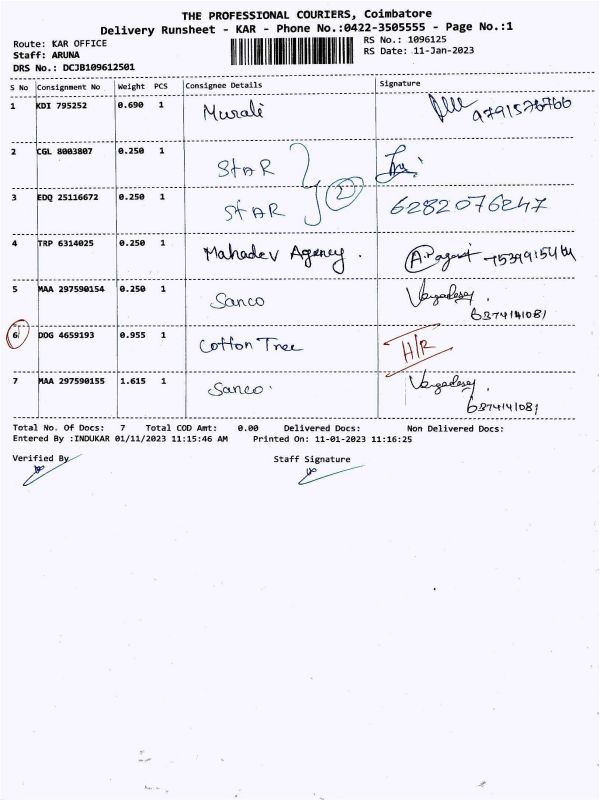 THE PROFESSIONAL COURIERS, Coimbatore
Delivery Runsheet - KAR - Phone No.:0422-3505555 - Page No.:1
Route: KAR OFFICE
RS No.: 1096125
Staff: ARUNA
RS Date: 11-Jan-2023
DRS No.: DCJB109612501
S No Consignment No Weight PCS Consignee Details Signature
1 KDI 795252 0.690 1 Murali
2 CGL 8003807 0.250 1 STAR
2
3 EDQ 25116672 0.250 1 STAR 6282076247
4 TRP 6314025 0.250 1 Mahadev Agency.
5 MAA 297590154 0.250 1 Sanco
6374141081
6 DOG 4659193 0.955 1 Cotton Tree H/R
7 MAA 297590155 1.615 1 Sanco.
6374141081
Total No. Of Docs: 7 Total COD Amt: 0.00 Delivered Docs: Non Delivered Docs:
Entered By :INDUKAR 01/11/2023 11:15:46 AM Printed On: 11-01-2023 11:16:25
Verified By Staff Signature